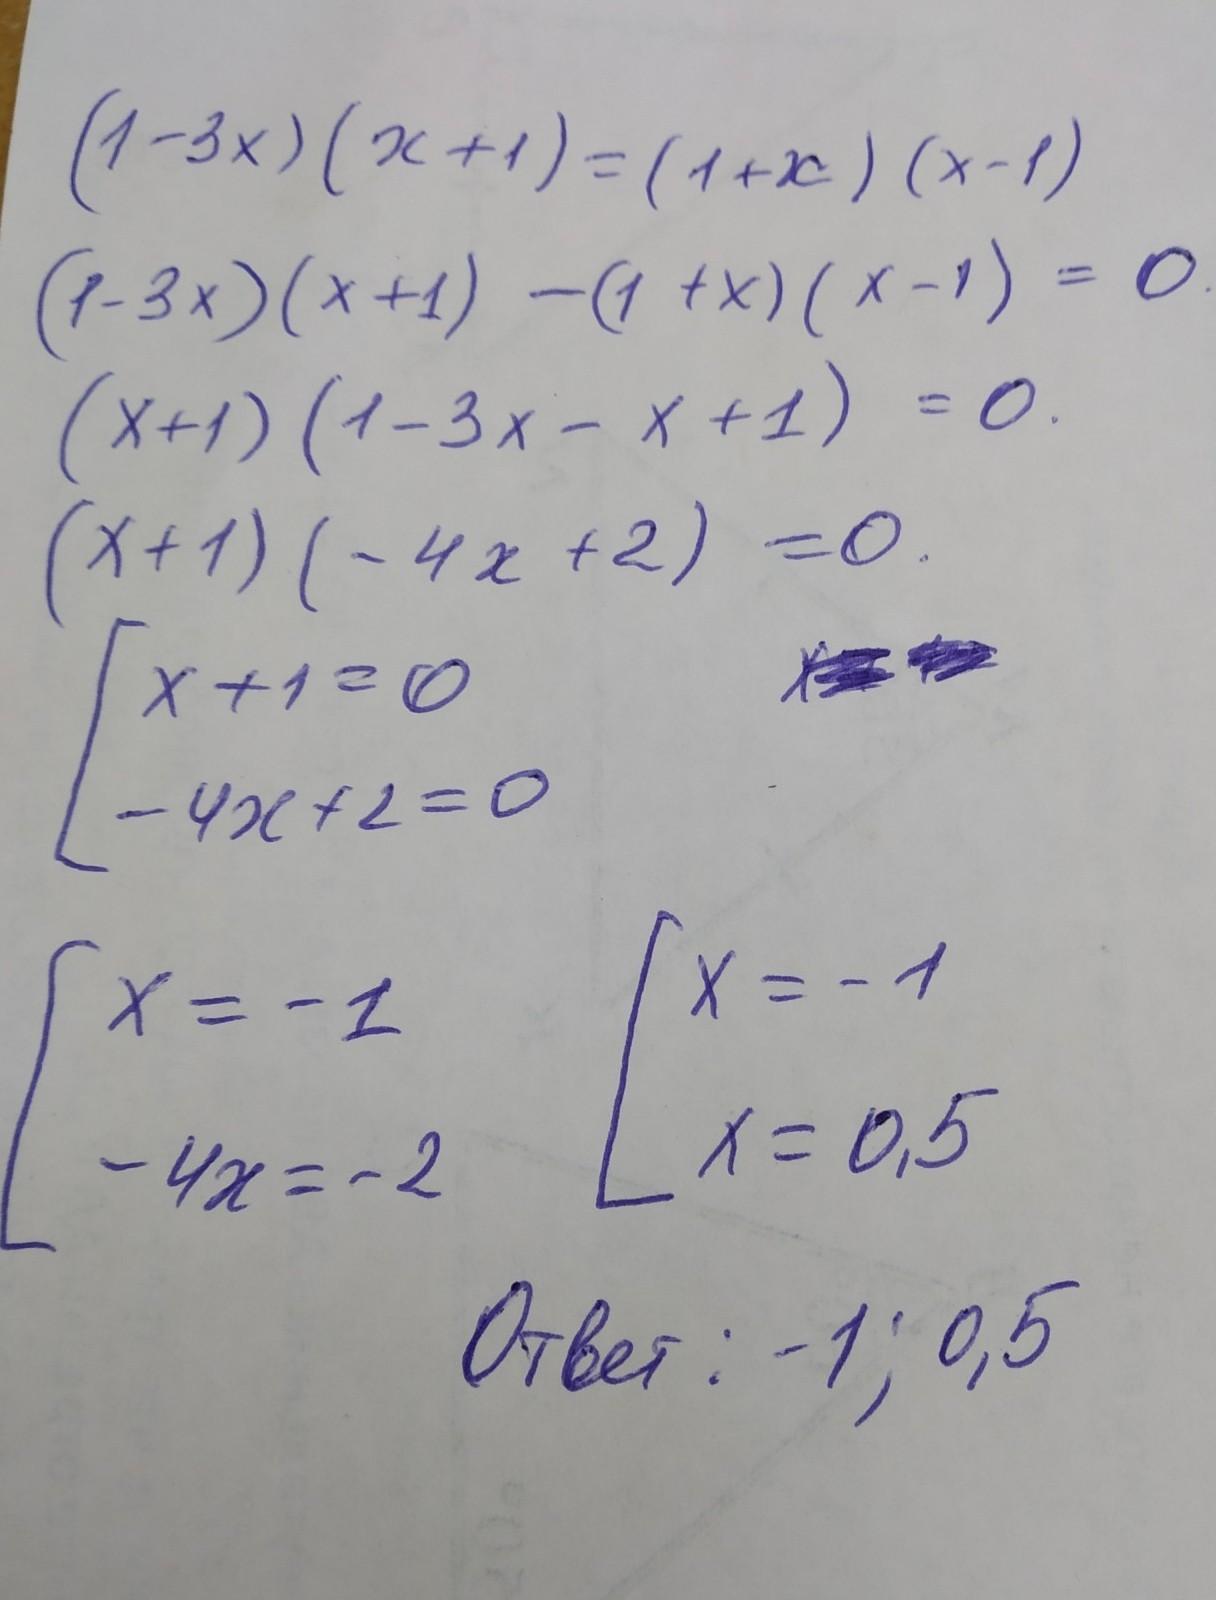 (1-3x)(x+1)=(1+x)(x-1)
(1-3x)(x+1)-(1+x)(x-1)=0.
(x+1)(1-3x-x+1)=0.
(x+1)(-4x+2)=0.
[x+1=0
-4x+2=0
[x=-1
-4x=-2
[x=-1
x=0,5
Ответ: -1; 0,5